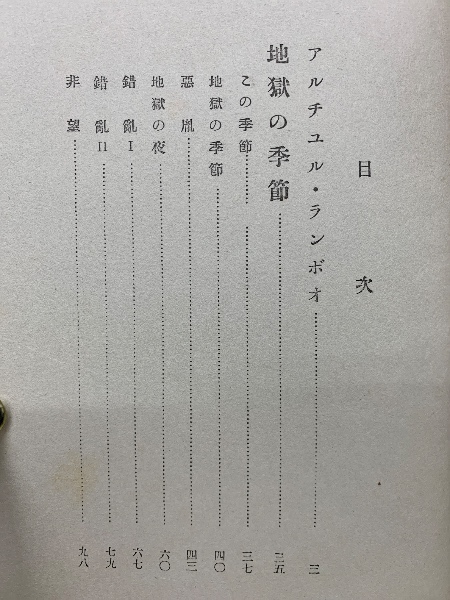 目次
アルチユル・ランボオ……三
地獄の季節……三五
この季節……三七
地獄の季節……四〇
惡胤……四三
地獄の夜……六〇
錯亂I……六七
錯亂II……七九
非望……九八